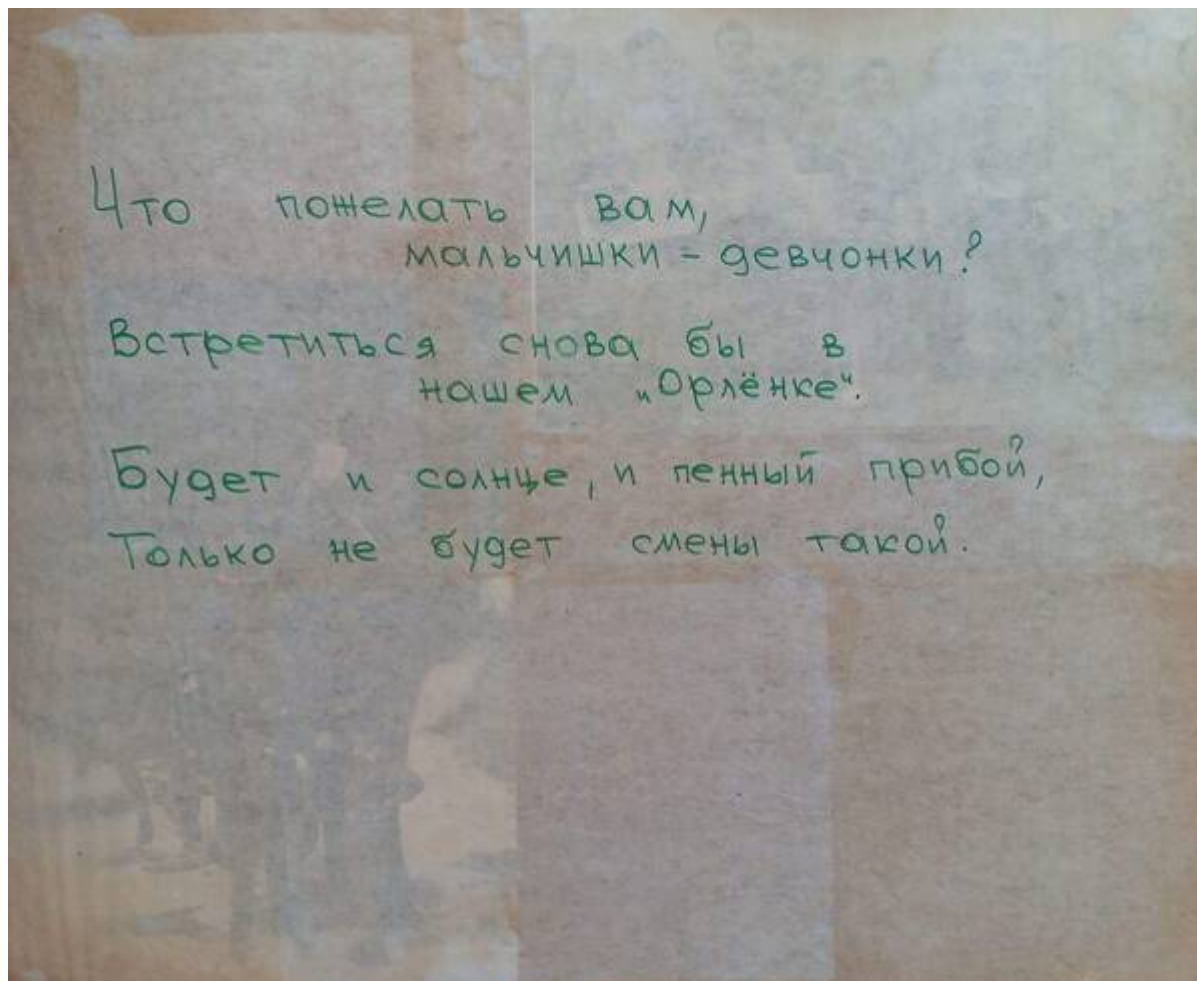 Что пожелать вам,
мальчишки - девчонки?
Встретиться снова бы в
нашем „Орлёнке“.
Будет и солнце, и пенный прибой,
Только не будет смены такой.